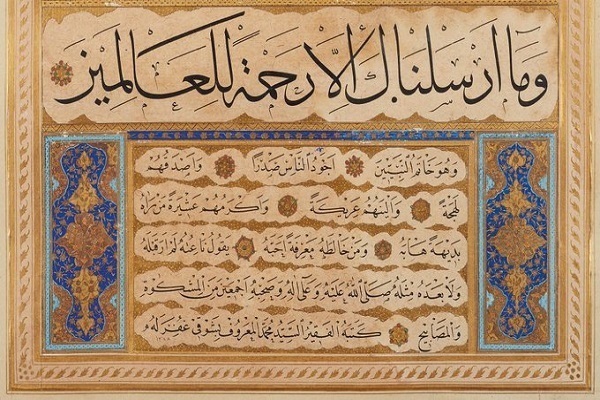 وما ارسلناك الا رحمة للعالمين
وهو خاتم النبيين اجود الناس صدرا واصدقهم
لهجة والينهم عريكة واكرمهم عشرة من راه
بديهة هابه ومن خالطه معرفة احبه يقول ناعته لم ار قبله
ولا بعده مثله صلى الله عليه وعلى اله وصحبه اجمعين من المشكوة
والمصابيح كتبه الفقير السيد محمد المعروف بشوقي غفر له